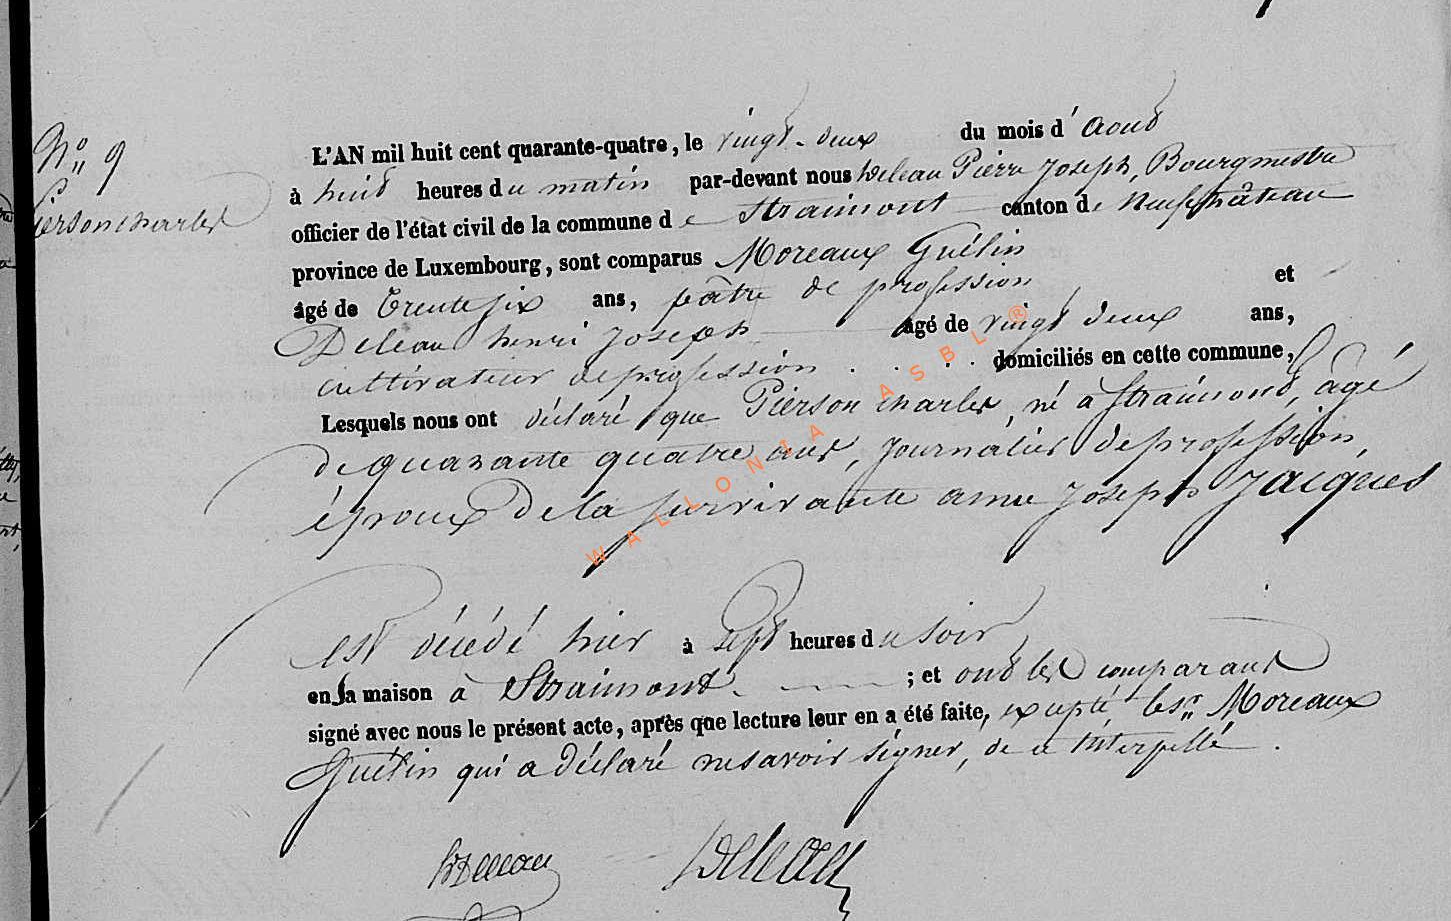 N° 9
Pierson charles
L'AN mil huit cent quarante-quatre, le vingt-deux du mois d'aout
à huit heures du matin par-devant nous Deleau Pierre Joseph, Bourgmestre
officier de l'état civil de la commune de Straimont canton de Neufchâteau
province de Luxembourg, sont comparus Moreaux Guélin
âgé de trente six ans, pâtre de profession, et
Deleau henri Joseph âgé de vingt deux ans,
cultivateur de profession . . . . domiciliés en cette commune,
Lesquels nous ont déclaré que Pierson charles, né à Straimont, âgé
de quarante quatre ans, journalier de profession,
époux de la survivante anne Joseph Jacques
est décédé hier à sept heures du soir,
en sa maison à Straimont ; et ont les comparant
signé avec nous le présent acte, après que lecture leur en a été faite, excepté le sr Moreaux
Guélin qui a déclaré ne savoir signer, de ce interpellé.
hJDeleau Deleau
WALLONIA ASBL ®